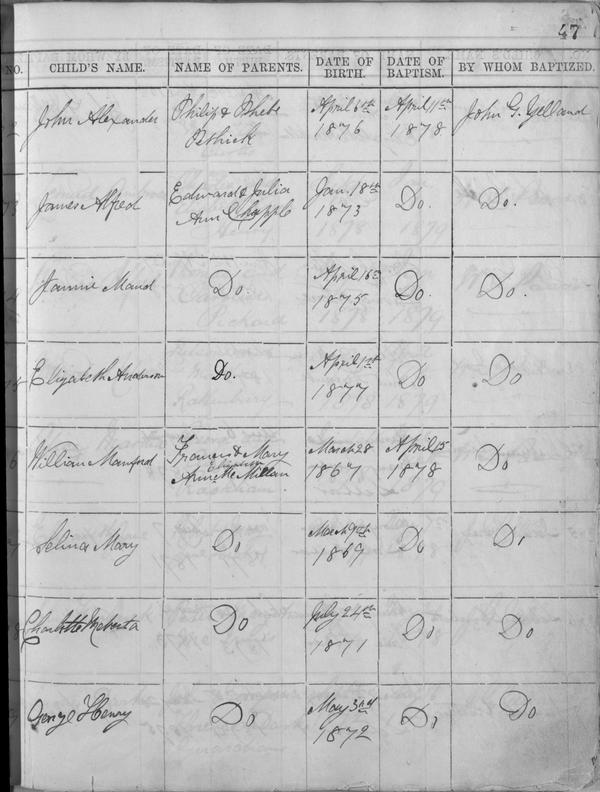 47
NO. CHILD'S NAME. NAME OF PARENTS. DATE OF BIRTH. DATE OF BAPTISM. BY WHOM BAPTIZED.
John Alexander Philip & Phebe Pethick April 6th 1876 April 11th 1878 John G. Yelland
James Alfred Edward & Julia Ann Chapple Jan. 18th 1873 Do. Do.
Maud Do. April 16th 1875 Do. Do.
Elizabeth Anderson Do. April 1st 1877 Do Do
William Manford Francis & Mary March 28 1867 April 15 1878 Do
Selina Mary Do March 9th 1869 Do Do
Charlotte Do July 24th 1871 Do Do
George Henry Do May 3rd 1872 Do Do